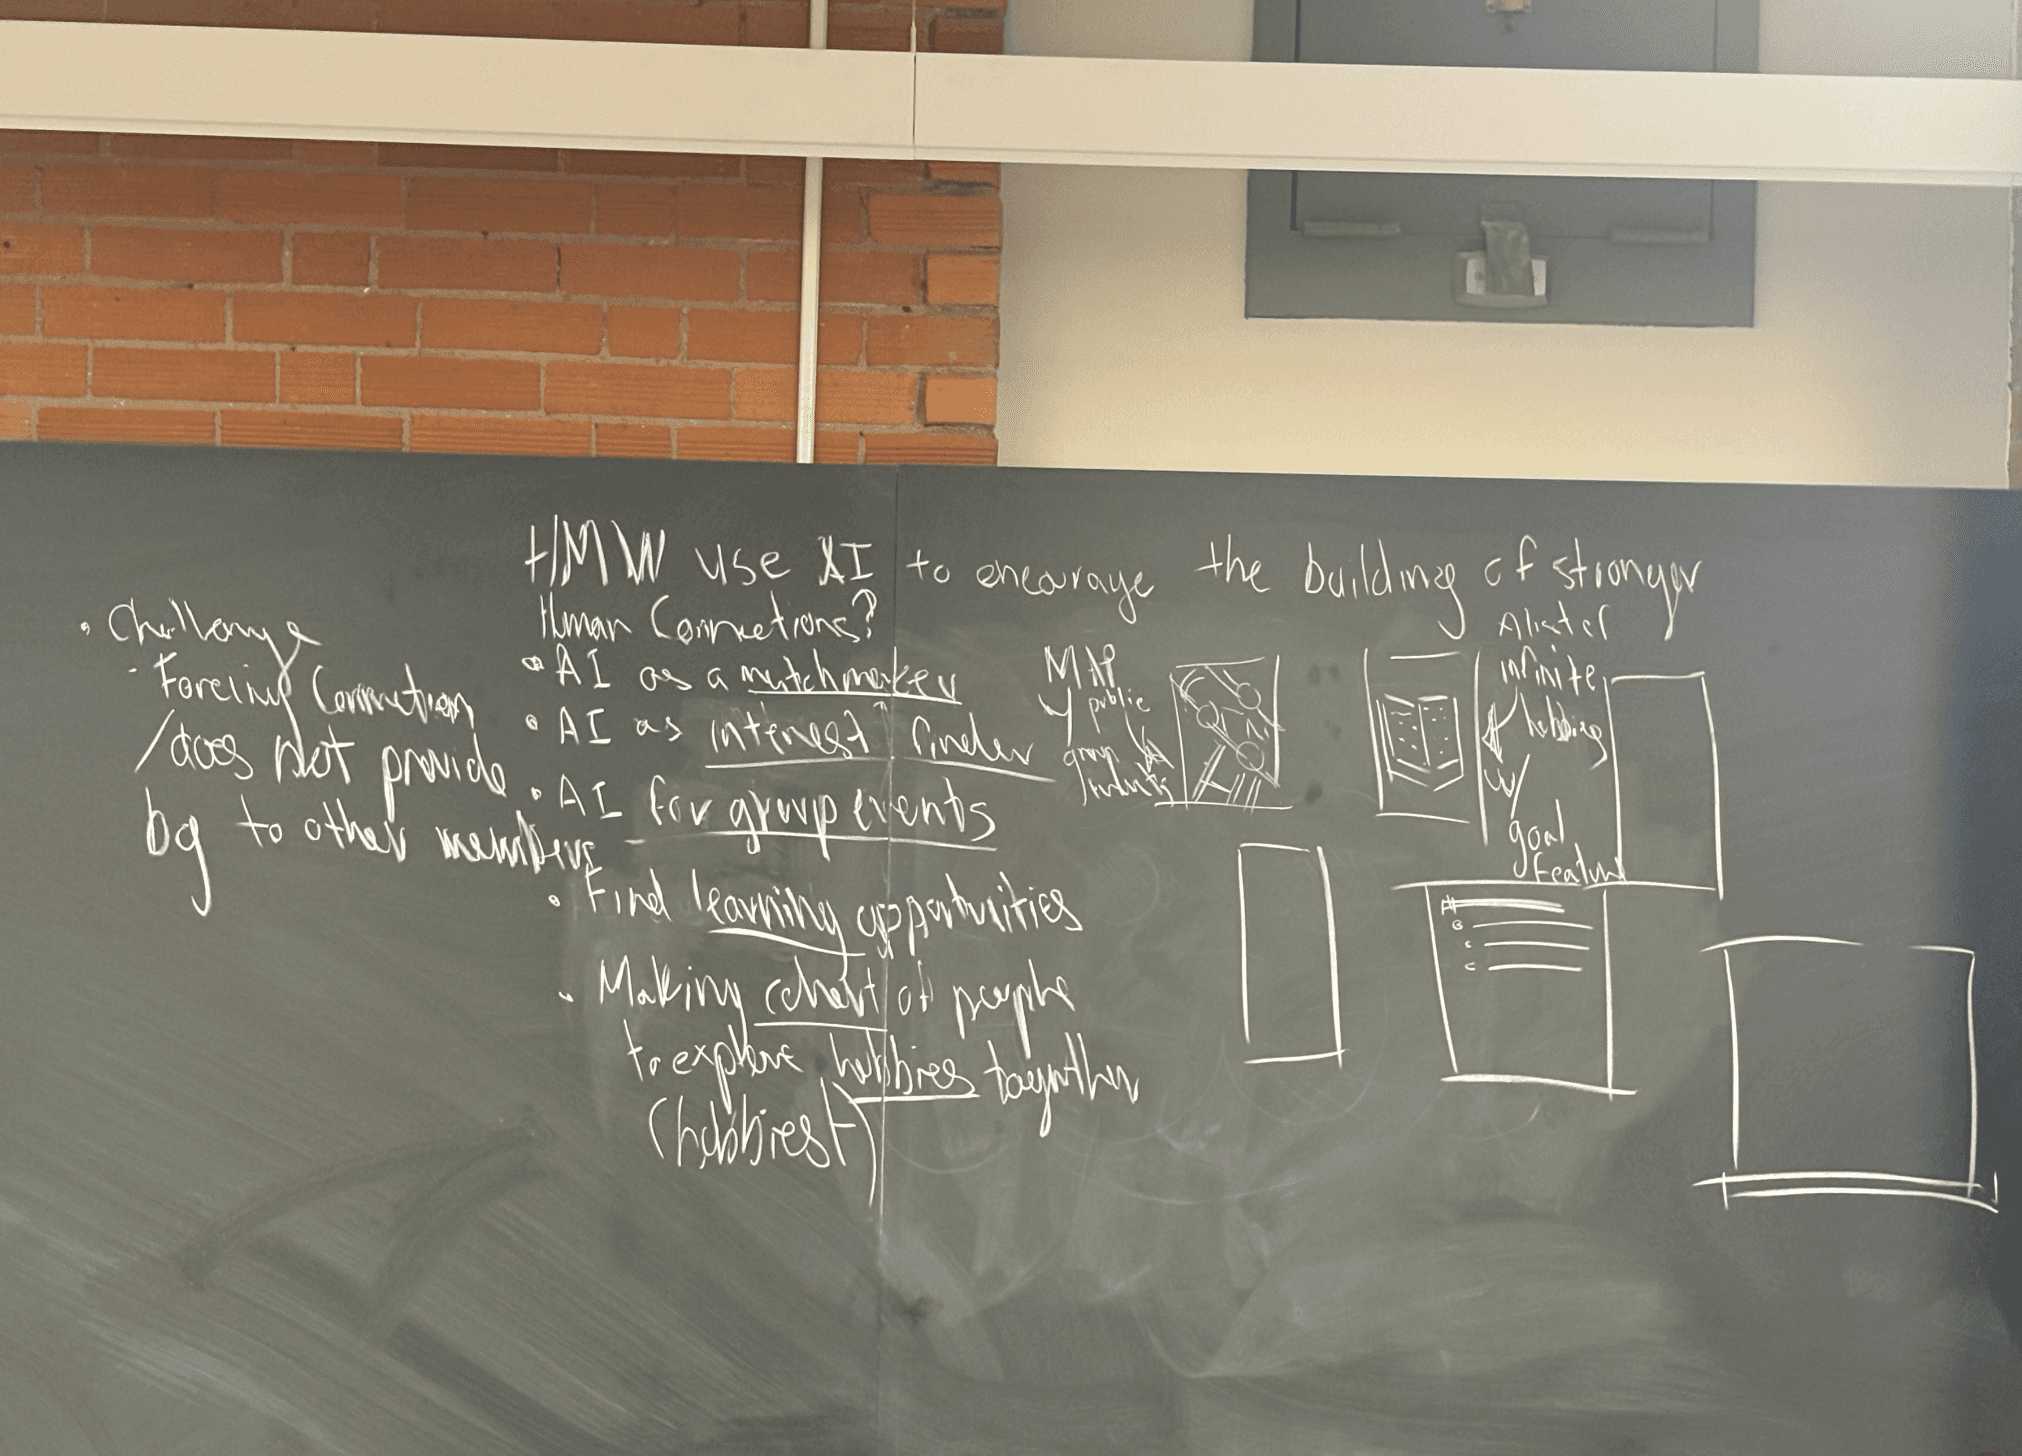 HMW use AI to encourage the building of stronger
Human Connections?
• AI as a matchmaker
• AI as interest finder
• AI for group events
• Find learning opportunities
• Making cohort of people
to explore hobbies together
(hobbiest)
• Challenge
- Forcing Connection
/does not provide
bg to other members
MAP
public
group
products
infinite
hobbies
w/
goal
Feature